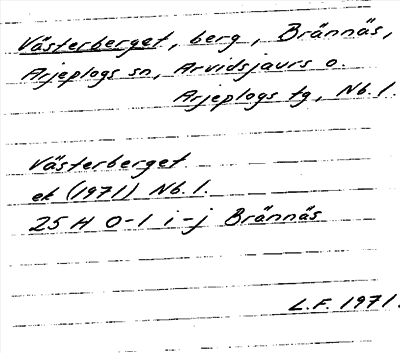 Västerberget, berg, Brännäs,
Arjeplogs sn, Arvidsjaurs o.
Arjeplogs tg, Nb. l.
Västerberget
ek (1971) Nb. l.
25 H 0-1 i-j Brännäs
L.F. 1971.